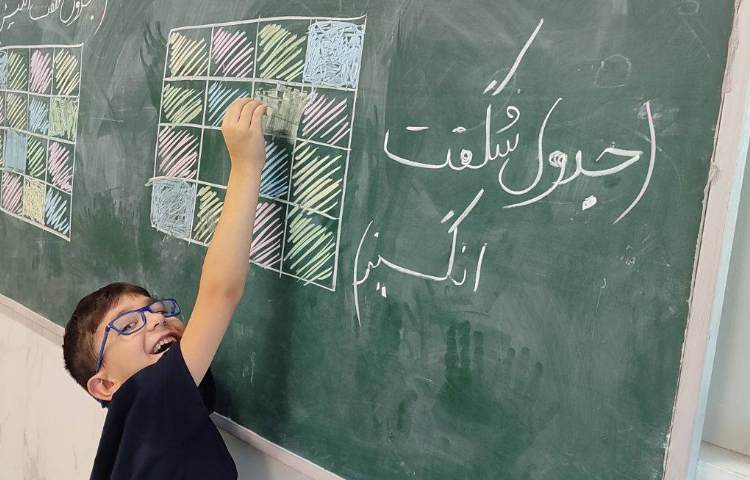 (جدول شگفت
انگیز)